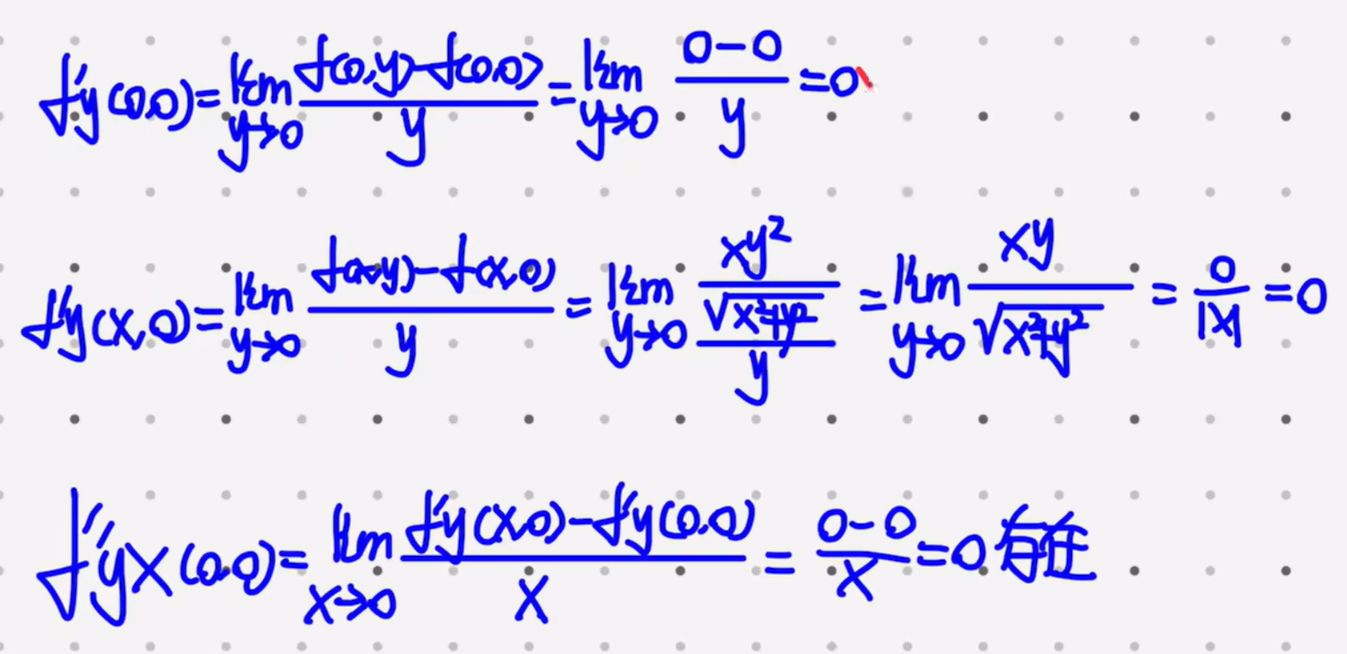 f'y(0,0)=lim_{y→0} \frac{f(0,y)-f(0,0)}{y}=lim_{y→0} \frac{0-0}{y}=0
f'y(x,0)=lim_{y→0} \frac{f(x,y)-f(x,0)}{y}=lim_{y→0} \frac{\frac{xy^2}{\sqrt{x^2+y^2}}}{y}=lim_{y→0} \frac{xy}{\sqrt{x^2+y^2}}=\frac{0}{|x|}=0
f''yx(0,0)=lim_{x→0} \frac{f'y(x,0)-f'y(0,0)}{x}=\frac{0-0}{x}=0 存在